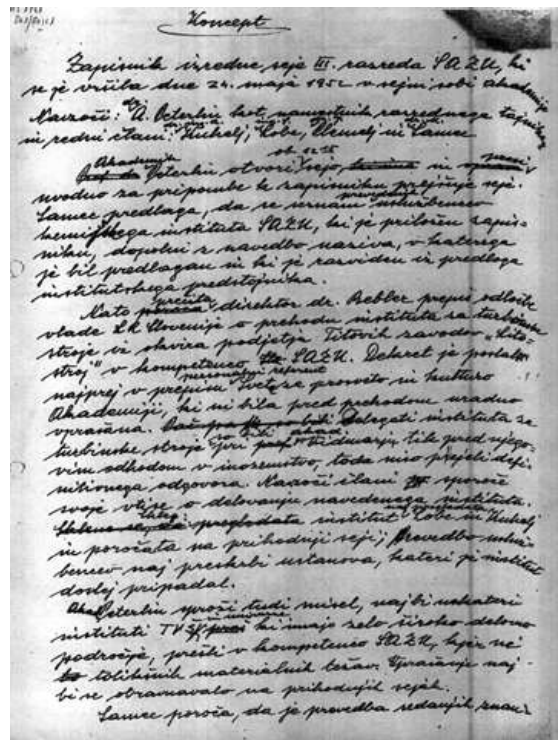 Koncept
Zapisnik izredne seje III. razreda SAZU, ki
se je vršila dne 24. maja 1952 v sejni sobi Akademije
Navzoči: dr. A. Peterlin kot namestnik razrednega tajnika
in redni člani: Kuhelj, Lobe, in Samec
Akademik ob 12
Peterlin otvori sejo, in
uvodno za pripombe k zapisniku prejšnje seje.
Samec predlaga, da se seznam uslužbencev
kemijskega instituta SAZU, ki je priložen zapis-
niku, dopolni z navedbo naziva, v katerega
je bil predlagan in ki je razviden iz predloga
institutskega predstojnika.
Nato prečita direktor dr. Bebler prepis odločbe
vlade LR Slovenije o prehodu instituta za turbinske
stroje iz okvira podjetja Titovih zavodov "Lito-
stroj" v kompetenco SAZU. Dekret je poslal
personalni referent
najprej v prepisu Sveta za prosveto in kulturo
Akademiji, ki ni bila pred prehodom uradno
vprašana. Delegati instituta za
so bili akad.
turbinske stroje pri Vidmarju tik pred njego-
vim odhodom v inozemstvo, toda niso prejeli defi-
nitivnega odgovora. Navzoči člani sporoče
svoje vtise o delovanju navedenega instituta.
pregledata institut Lobe in Kuhelj
in poročata na prihodnji seji; Prevedbo usluž-
bencev naj preskrbi ustanova, kateri je institut
doslej pripadal.
Akad. Peterlin sproži tudi misel, naj bi nekateri
instituti TVŠ, ki imajo zelo široko delovno
področje, prešli v kompetenco SAZU, kjer ni
tolikšnih materialnih težav. Vprašanje naj
bi se obravnavalo na prihodnjih sejah.
Samec poroča, da je prevedba sedanjih znan-